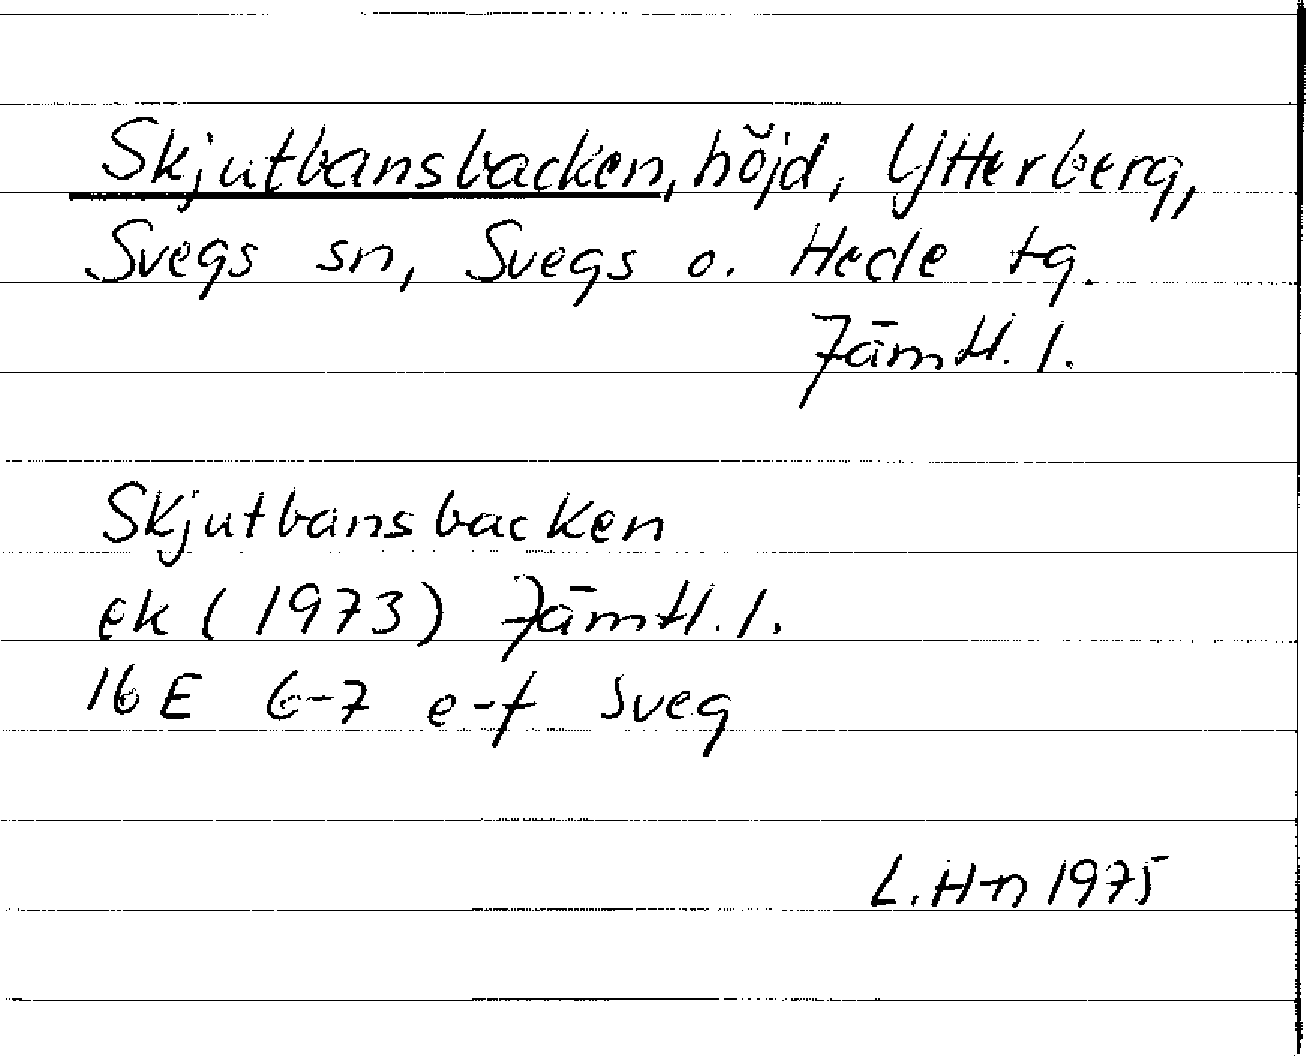 Skjutbansbacken, höjd, Ytterberg,
Svegs sn, Svegs o. Hede tg.
Jämtl. l.
Skjutbansbacken
ek (1973) Jämtl. l.
16 E 6-7 e-f Sveg
L. H-n 1975